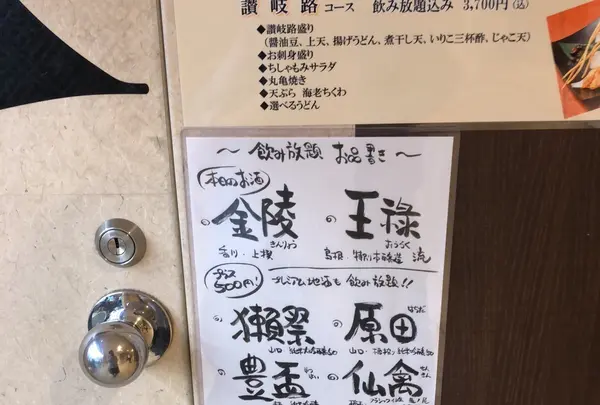 讃岐路 コース 飲み放題込み 3,700円(込)
◆讃岐路盛り
(醤油豆、上天、揚げうどん、煮干し天、いりこ三杯酢、じゃこ天)
◆お刺身盛り
◆ちしゃもみサラダ
◆丸亀焼き
◆天ぷら 海老ちくわ
◆選べるうどん
〜 飲み放題 お品書き 〜
本日のお酒
金陵 の王祿
きんりょう おうろく
香川・上撰 島根・
プラス500円!
プレミアム地酒も飲み放題!!
獺祭 の原田
はらだ
山口 山口
の豊盃 の仙禽
せんきん